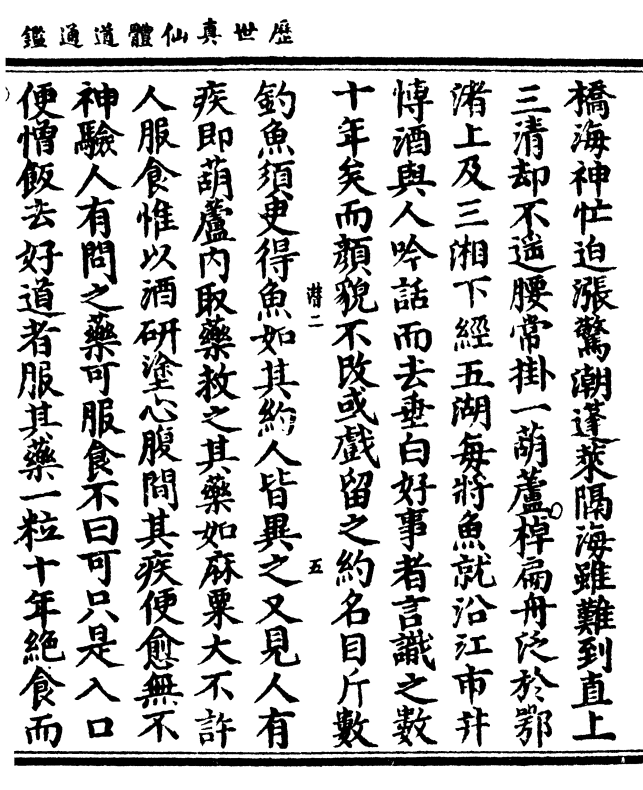 歷世真仙體道通鑑
橋海神忙迫漲驚潮蓬萊隔海雖難到直上
三清却不遥腰常掛一葫蘆棹扁舟泛於鄂
渚上及三湘下經五湖每將魚就沿江市井
博酒與人吟話而去垂白好事者言識之數
十年矣而顔貌不改或戲留之約名目斤數
潜二
五
釣魚須臾得魚如其約人皆異之又見人有
疾即葫蘆内取藥救之其藥如麻粟大不許
人服食惟以酒研塗心腹間其疾便愈無不
神驗人有問之藥可服食不曰可只是入口
便憎飯去好道者服其藥一粒十年絶食而